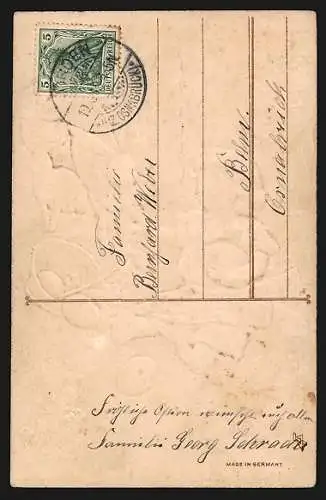 5 5
DEUTSCHES REICH
(BZ. OSNABRÜCK)
Familie
Bernhard
Böhne
Osnabrück
Fröhliche Ostern wünscht euch allen
Familie Georg Schrader
MADE IN GERMANY